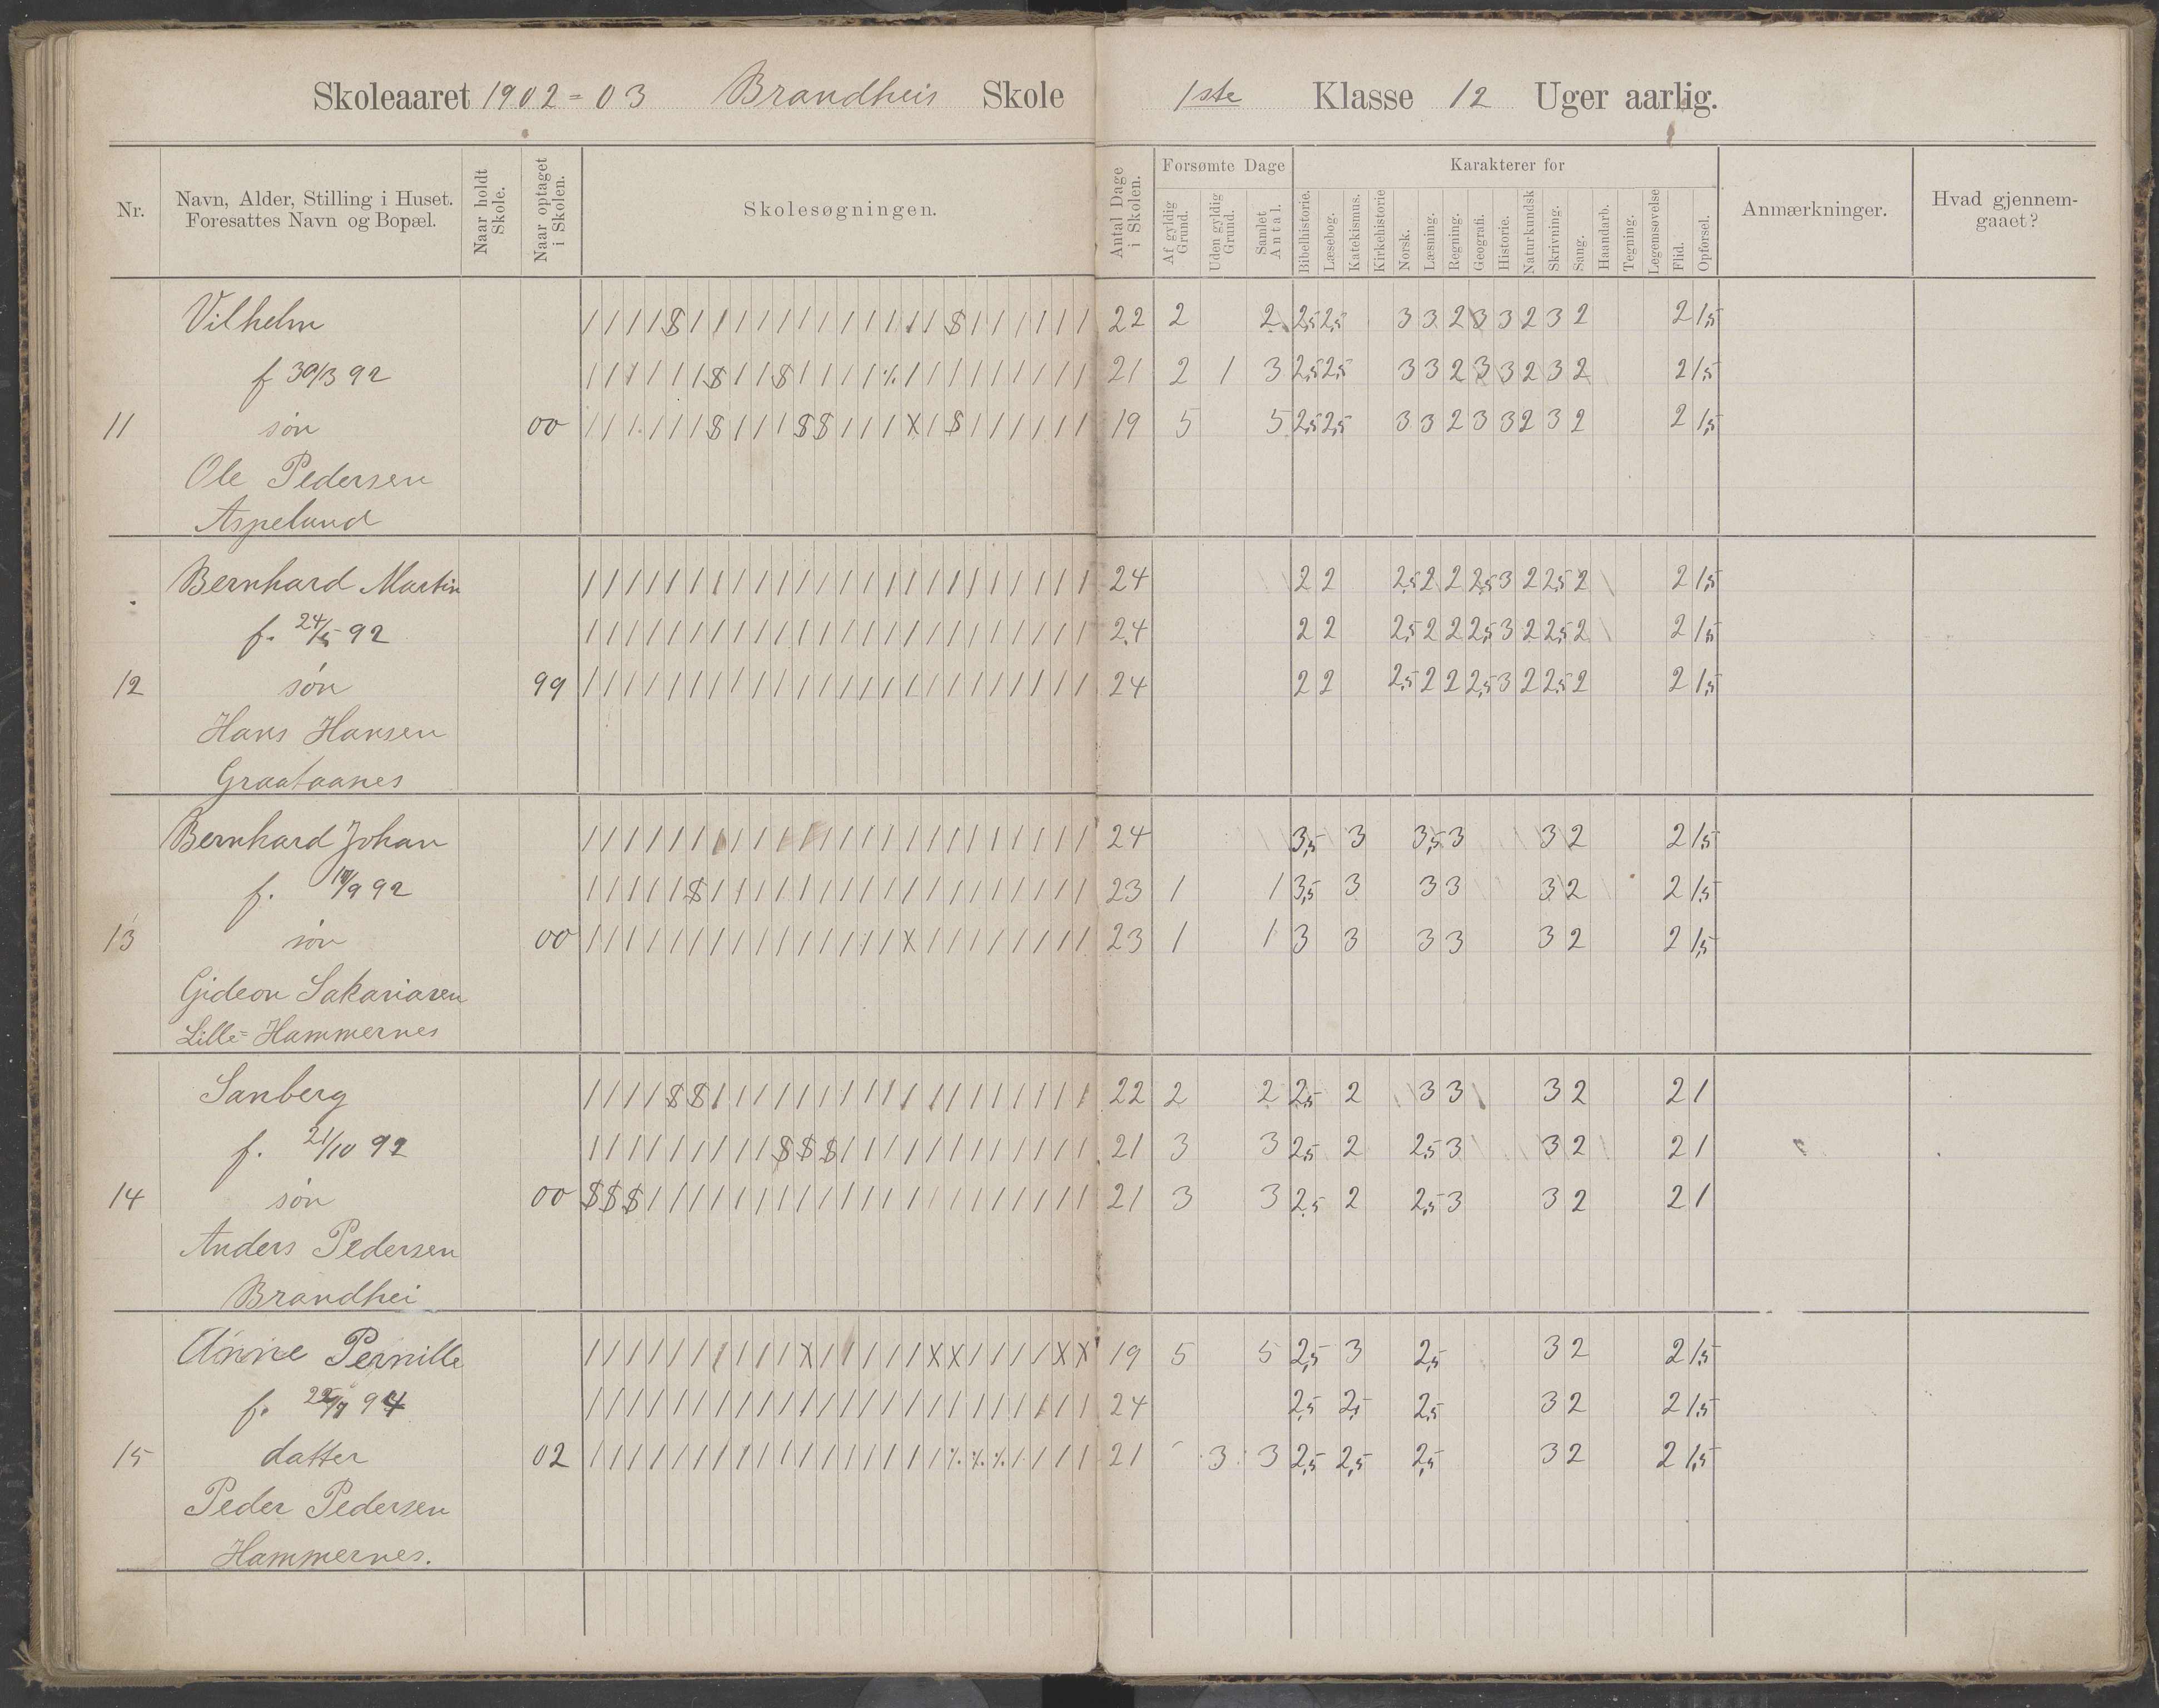 Skoleaaret 1902=03 Brandheis Skole 1ste Klasse 12 Uger aarlig.
Nr.
Navn, Alder, Stilling i Huset. Foresattes Navn og Bopæl.
Naar holdt Skole.
Naar optaget i Skolen.
Skolesøgningen.
Antal Dage i Skolen.
Forsømte Dage
Af gyldig Grund.
Uden gyldig Grund.
Samlet Antal.
Karakterer for
Bibelhistorie.
Læsebog.
Katekismus.
Kirkehistorie
Norsk.
Læsning.
Regning.
Geografi.
Historie.
Naturkundsk
Skrivning.
Sang.
Haandarb.
Tegning.
Legemsøvelse
Flid.
Opførsel.
Anmærkninger.
Hvad gjennem-
gaaet?
Vilhelm / / / / $ / / / / / / / / / / / / $ / / / / / / 22 2 2 2,5 2,5 3 3 2 3 3 2 3 2 2 1,5
f 30/3 92 / / / / / / $ / / $ / / / / % / / / / / / / / / 21 2 1 3 2,5 2,5 3 3 2 3 3 2 3 2 2 1,5
11 søn 00 / / / / / / $ / / / $ $ / / / X / $ / / / / / / 19 5 5 2,5 2,5 3 3 2 3 3 2 3 2 2 1,5
Ole Pedersen
Aspelund
Bernhard Martin / / / / / / / / / / / / / / / / / / / / / / / / 24 2 2 2,5 2 2 2,5 3 2 2,5 2 2 1,5
f. 24/5 92 / / / / / / / / / / / / / / / / / / / / / / / / 24 2 2 2,5 2 2 2,5 3 2 2,5 2 2 1,5
12 søn 99 / / / / / / / / / / / / / / / / / / / / / / / / 24 2 2 2,5 2 2 2,5 3 2 2,5 2 2 1,5
Hans Hansen
Graataanes
Bernhard Johan / / / / / / / / / / / / / / / / / / / / / / / / 24 3,5 3 3,5 3 3 2 2 1,5
f. /9 92 / / / / / $ / / / / / / / / / / / / / / / / / / 23 1 1 3,5 3 3 3 3 2 2 1,5
13 søn 00 / / / / / / / / / / / / / / / X / / / / / / / / 23 1 1 3 3 3 3 3 2 2 1,5
Gideon Sakariasen
Lille=Hammernes
Sanberg / / / / $ $ / / / / / / / / / / / / / / / / / / 22 2 2 2,5 2 3 3 3 2 2 1
f. 21/10 92 / / / / / / / / / $ $ $ / / / / / / / / / / / / 21 3 3 2,5 2 2,5 3 3 2 2 1
14 søn 00 $ $ $ / / / / / / / / / / / / / / / / / / / / / 21 3 3 2,5 2 2,5 3 3 2 2 1
Anders Pedersen
Brandhei
Anne Pernille / / / / / / / / / / X / / / / / X X / / / / X X 19 5 5 2,5 3 2,5 3 2 2 1,5
f. 94 / / / / / / / / / / / / / / / / / / / / / / / / 24 2,5 2,5 2,5 3 2 2 1,5
15 datter 02 / / / / / / / / / / / / / / / / / % % % / / / / 21 3 3 2,5 2,5 2,5 3 2 2 1,5
Peder Pedersen
Hammernes.